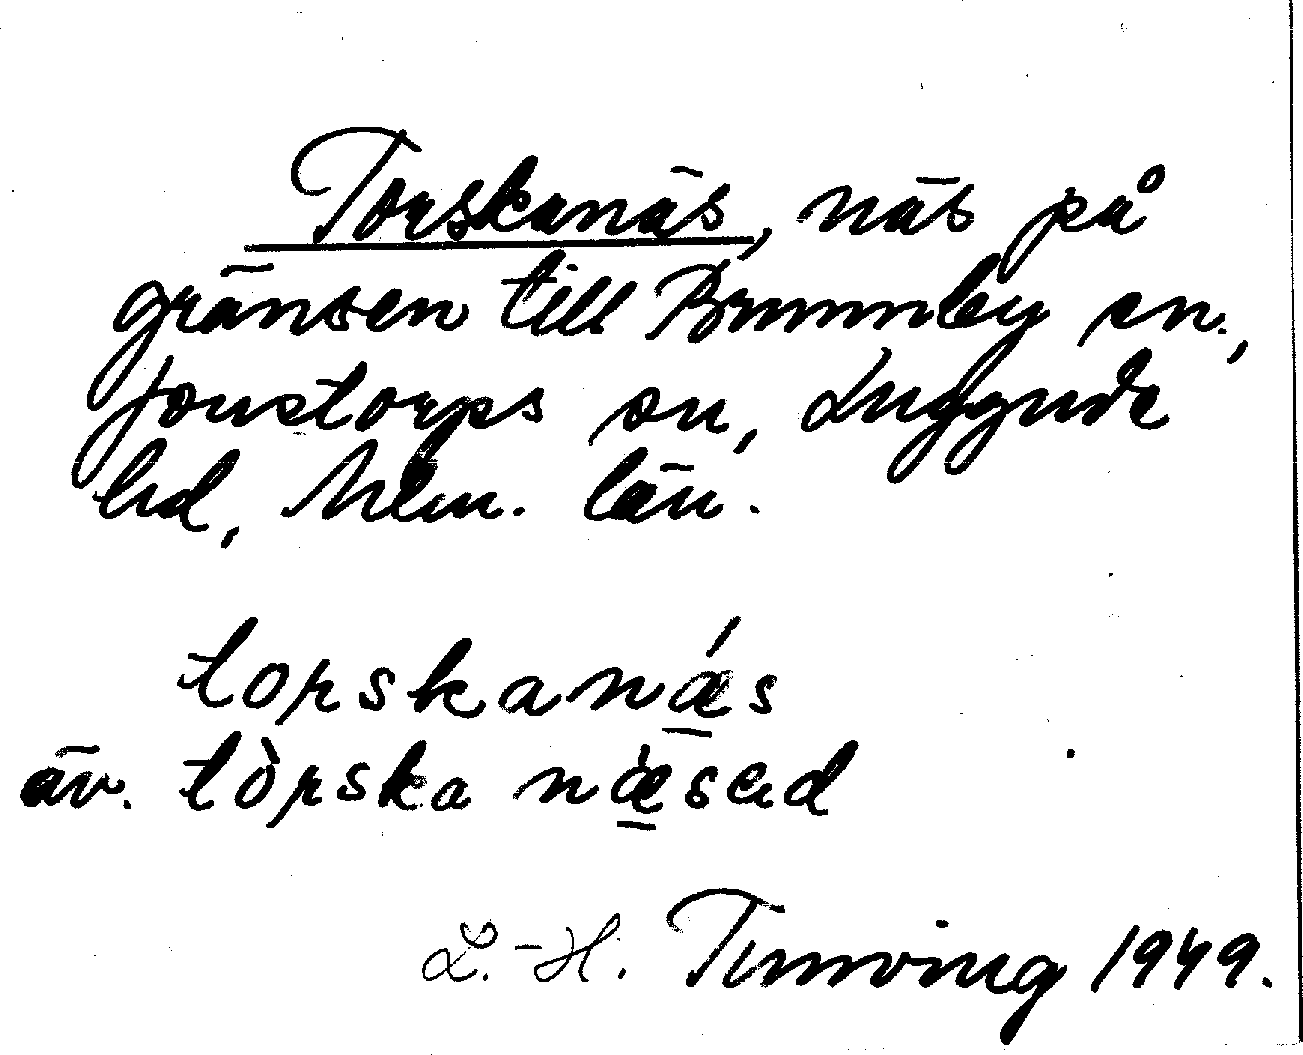 Torskanäs, näs på
gränsen till Brunnby sn.,
Jonstorps sn, Luggude
hd, Mlm. län.
torskanǽs
äv. tòrska næ̀sad
L.-H. Tunving 1949.